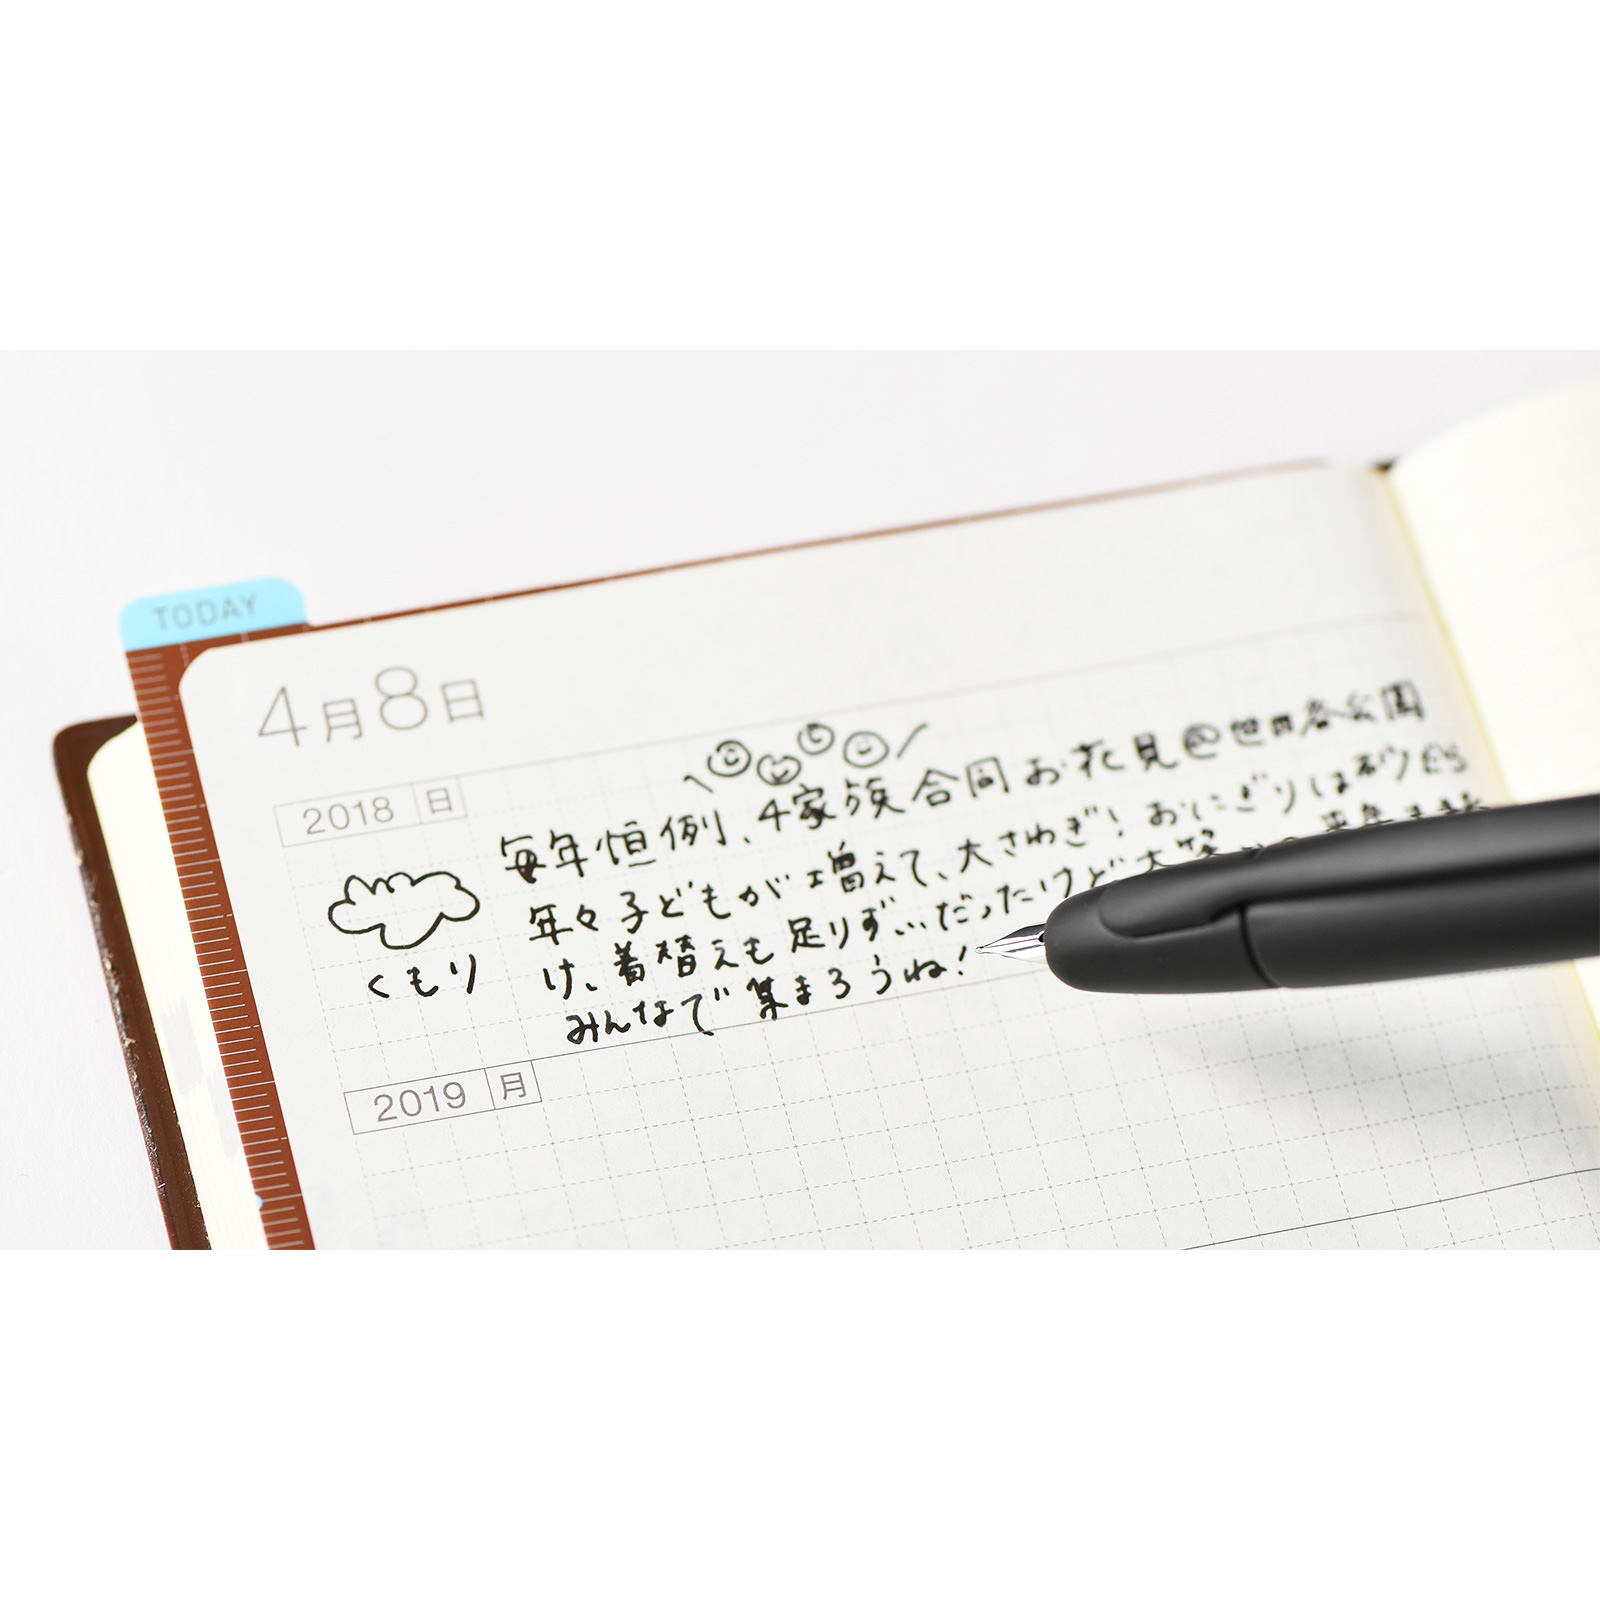 TODAY
4月8日
2018 日
毎年恒例、4家族合同お花見@世田谷公園
年々子どもが増えて、大さわぎ!おにぎりは砂
け、着替えも足りず…だったけど大笑
みんなで集まろうね!
くもり
2019 月